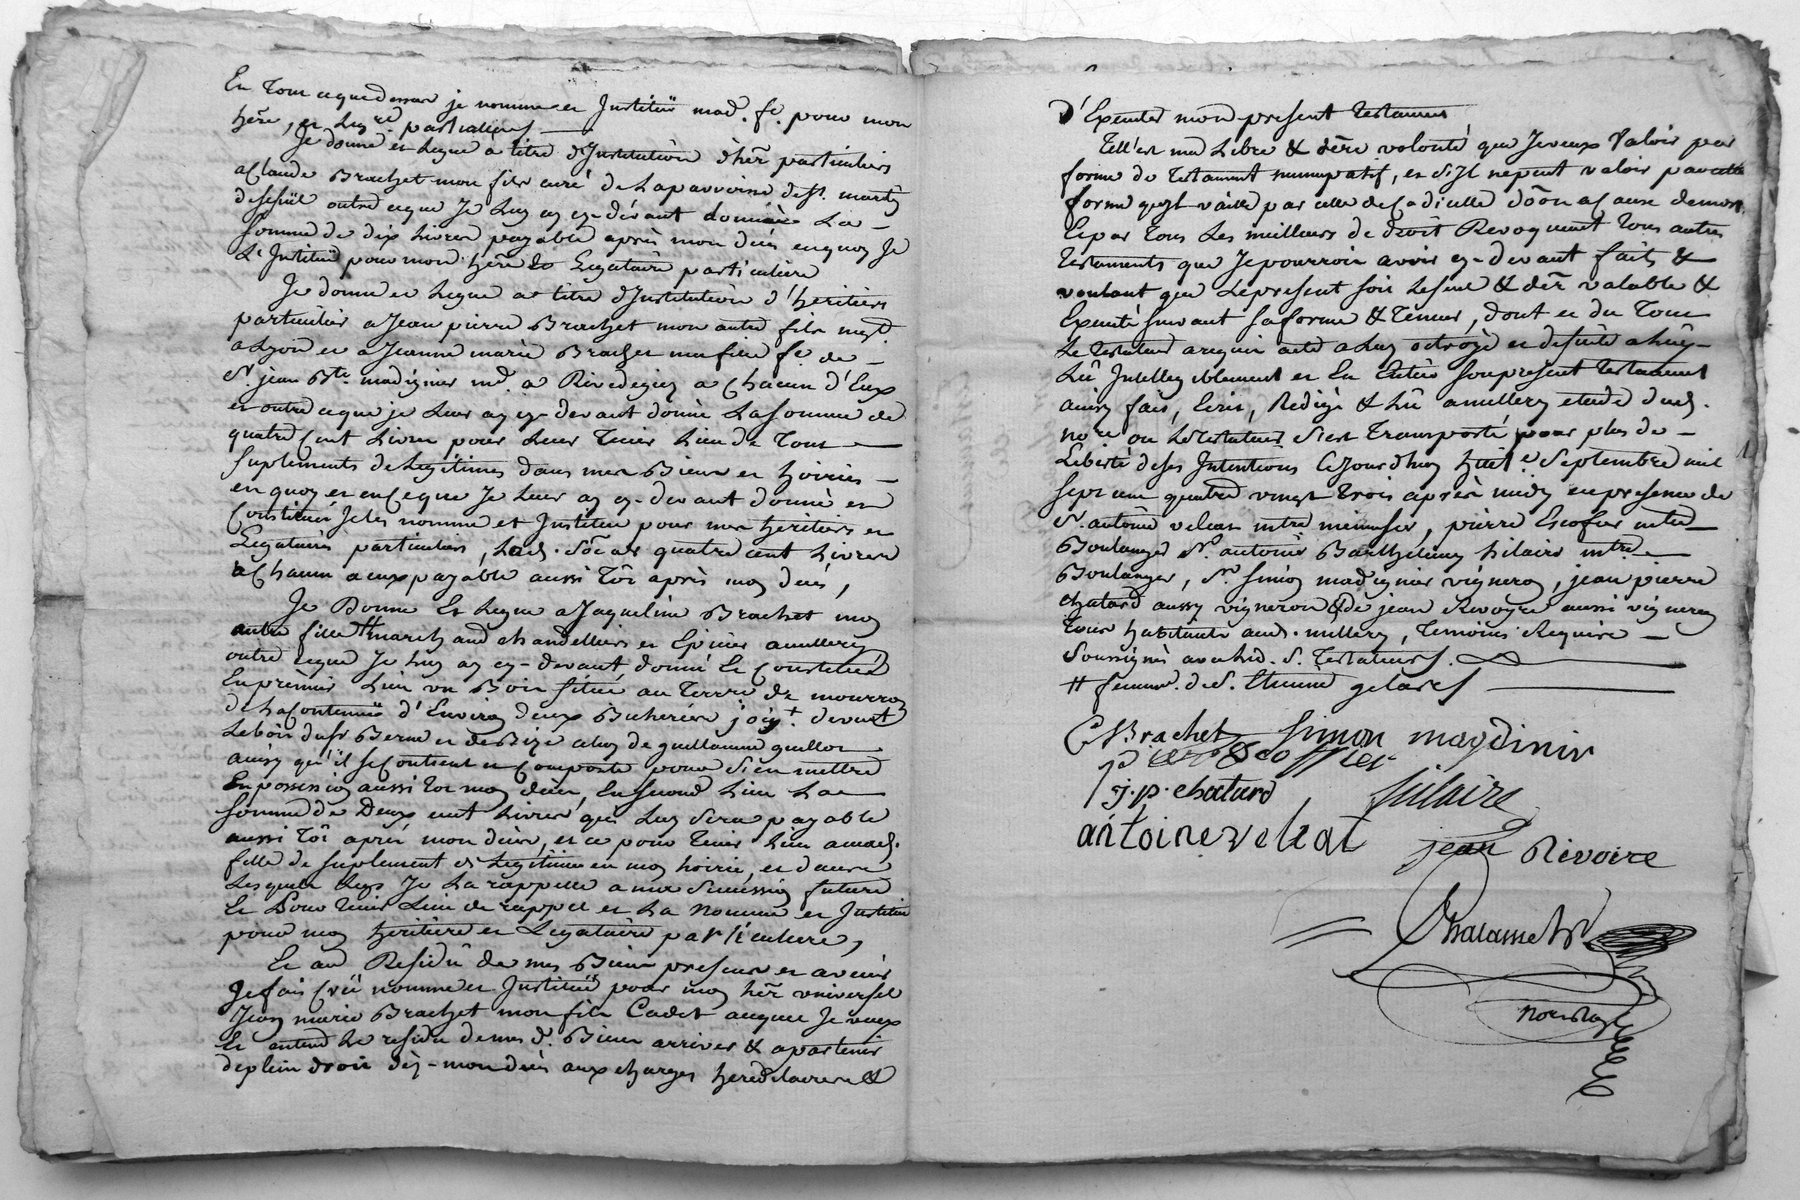 En Tout ce que dessus je nomme et Instituë mad. fe. pour mon
hére, et Leg.re particulieres
Je donne et Legue a titre d'Institution d'hér particuliers
a Claude Brachet mon fils curé de La parroisse de st. martin
outre ce que Je Luy ay cy-dévant donnée La
Somme de dix Livres payable après mon décès en quoy Je
L'Instituë pour mon hére & Legataire particuliére
Je donne et Legue a titre d'Institution d'heritiers
particuliers a Jean pierre Brachet mon autre fils negt.
a Lyon et a Jeanne marie Brachet ma fille fe. de
Sr. jean Bte. madignier md. a Rivedegiez a Chacun d'Eux
et outre ce que je Leur ay cy-devant donné La somme de
quatre Cent Livres pour Leur Tenir Lieu de Tous
Suplements de Legitimes dans mes Biens et hoiries
en quoy et en Ce que Je Leur ay cy-devant donné et
Constitué Je Les nomme et Institue pour mes heritiers et
Legataires particuliers, Lad. Sôe de quatre cent Livres
a Chacun a eux payable aussi Tôt après moy decès,
Je Donne Et Legue a Jaqueline Brachet moy
autre fille # marchand chandellier et Epicier a millery
outre ce que Je Luy ay cy-devant donné Et Constitué
En prèmier Lieu un Bois situé au Terre de mourroy
de La Contenuë d'Environ deux Bicherées joigt. devent
Le bois du sr Berne et de Bize celuy de guillaume guillot
ainsy qu'il se Contient et Comporte pour S'en mettre
En possession aussi Tot moy décès, En Second Lieu La
Somme de Deux cent Livres qui Luy Sera payable
aussi Tôt aprés mon décès, et ce pour Tenir Lieu a mad.
fille de Suplement de Legitime en moy hoirie, et dans
Lesquels Legs Je La rappelle a ma Succession future
Et Pour Tenir Lieu de rappel et La Nomme et Institue
pour moy heritiére et Legataire particuliere,
Et au Residû de mes Biens presents et avenir
Je fais Crëé nomme et Instituë pour moy hér universel
Jean marie Brachet mon fils Cadet auquel Je veux
Et entend Le residu de mes d. Biens arriver & apartenir
de plein droit dès-mon decès aux charges hereditaires &
d'Executer mon present Testament
Tell'est ma Libre & dére volonté que Je veux Valoir par
forme de Testament nunupatif, et S'Il ne peut valoir par cette
forme qu'Il vaille par celle de Codicille dôôn a Cause de mort
Et par Tous Les meilleurs de droit Revoquant Tous autres
testaments que Je pourrois avoir cy-devant faits &
voulant que Le present soit Le seul & dér valable &
Executé suivant sa forme & Teneur, dont et du Tout
Le Testateur a requis acte a Luy octroyé et de suite a Luy
Lû Intelligiblement et En Entier son present Testament
ainsy fait, Ecrit, Redigé & Lû a millery etude dud.
nore où Le Testateur S'est Transporté pour plus de
Liberté de ses Intentions Ce Jourdhuy huite. Septembre mil
sept cent quatre vingt Trois après midy en presence de
Sr. antoine veleat mtre menusier, pierre Escofier mtre
Boulanger Sr. antoine Barthelemy hilaire mtre
Boulanger, Sr. Simon madignier vigneron, jean pierre
chatard aussy vigneron & de jean Revoyre aussi vigneron
Tous habitants aud. millery, Temoins Require
Soussignés avec Led. S. Testateurs.
# femme. de S. Etienne gelas
C Brachet Simon maydinier
P Escoffier
j.p. chatard hilaire
antoine veleat
jean Rivoire
Chalamet
Nore Roy